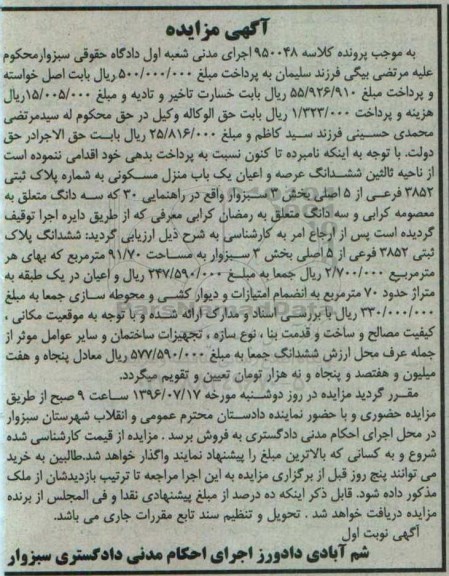 آگهی مزایده
به موجب پرونده کلاسه ۹۵۰۰۴۸ اجرای مدنی شعبه اول دادگاه حقوقی سبزوارمحکوم
علیه مرتضی بیگی فرزند سلیمان به پرداخت مبلغ ۵۰۰/۰۰۰/۰۰۰ ریال بابت اصل خواسته
و پرداخت مبلغ ۵۵/۹۲۶/۹۱۰ ریال بابت خسارت تاخیر و تادیه و مبلغ ۱۵/۰۰۵/۰۰۰ریال
هزینه و پرداخت ۱/۳۲۳/۰۰۰ بابت حق الوکاله وکیل در حق محکوم له سیدمرتضی
محمدی حسینی فرزند سید کاظم و مبلغ ۲۵/۸۱۶/۰۰۰ ریال بابت حق الاجرادر حق
دولت. با توجه به اینکه نامبرده تا کنون نسبت به پرداخت بدهی خود اقدامی ننموده است
از ناحیه ثالثین ششدانگ عرصه و اعیان یک باب منزل مسکونی به شماره پلاک ثبتی
۳۸۵۲ فرعی از ۵ اصلی بخش ۳ سبزوار واقع در راهنمایی ۳۰ که سه دانگ متعلق به
معصومه کرابی و سه دانگ متعلق به رمضان کرابی معرفی که از طریق دایره اجرا توقیف
گردیده است پس از ارجاع امر به کارشناسی به شرح ذیل ارزیابی گردید: ششدانگ پلاک
ثبتی ۳۸۵۲ فوعی از ۵ اصلی بخش ۳ سبزوار به مساحت ۹۱/۷۰ مترمربع که بهای هر
مترمربع ۲/۷۰۰/۰۰۰ ریال جمعا به مبلغ ۲۴۷/۵۹۰/۰۰۰ ریال و اعیان در یک طبقه به
متراژ حدود ۷۰ مترمربع به انضمام امتیازات و دیوار کشی و محوطه سازی جمعا به مبلغ
۳۳۰/۰۰۰/۰۰۰ ریال با بررسی اسناد و مدارک ارائه شده و با توجه به موقعیت مکانی ،
کیفیت مصالح و ساخت و قدمت بنا ، نوع سازه ، تجهیزات ساختمان و سایر عوامل موثر از
جمله عرف محل ارزش ششدانگ جمعا به مبلغ ۵۷۷/۵۹۰/۰۰۰ ریال معادل پنجاه و هفت
میلیون و هفتصد و پنجاه و نه هزار تومان تعیین و تقویم میگردد.
مقرر گردید مزایده در روز دوشنبه مورخه ۱۳۹۶/۰۷/۱۷ ساعت ۹ صبح از طریق
مزایده حضوری و با حضور نماینده دادستان محترم عمومی و انقلاب شهرستان سبزوار
در محل اجرای احکام مدنی دادگستری به فروش برسد . مزایده از قیمت کارشناسی شده
شروع و به کسانی که بالاترین مبلغ را پیشنهاد نمایند واگذار خواهد شد.طالبین به خرید
می توانند پنج روز قبل از برگزاری مزایده به این اجرا مراجعه تا ترتیب بازدیدشان از ملک
مذکور داده شود. قابل ذکر اینکه ده درصد از مبلغ پیشنهادی نقدا و فی المجلس از برنده
مزایده دریافت خواهد شد . تحویل و تنظیم سند تابع مقررات جاری می باشد.
آگهی نوبت اول
شم آبادی دادورز اجرای احکام مدنی دادگستری سبزوار